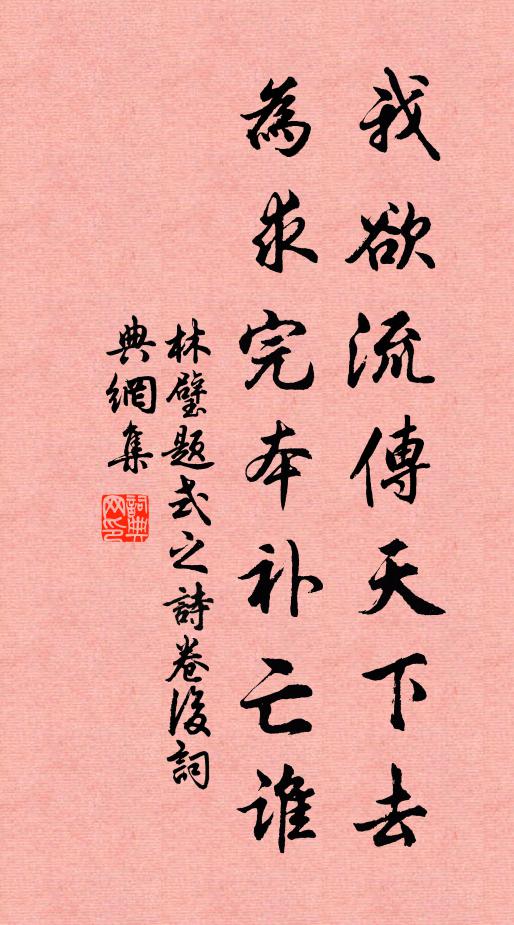 我欲流傳天下去
為求完本补亡谁
林壁題式之詩卷後詞
典網集
詞典網印